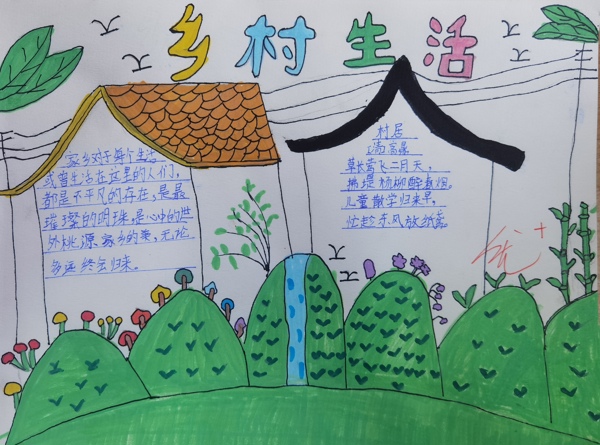 乡村生活
家乡对于每个生活
或曾生活在这里的人们,
都是不平凡的存在,是最
璀璨的明珠,是心中的世
外桃源家乡的美,无论
多远终会归来。
村居
清 高鼎
草长莺飞二月天,
拂堤杨柳醉春烟。
儿童散学归来早,
忙趁东风放纸鸢
优+